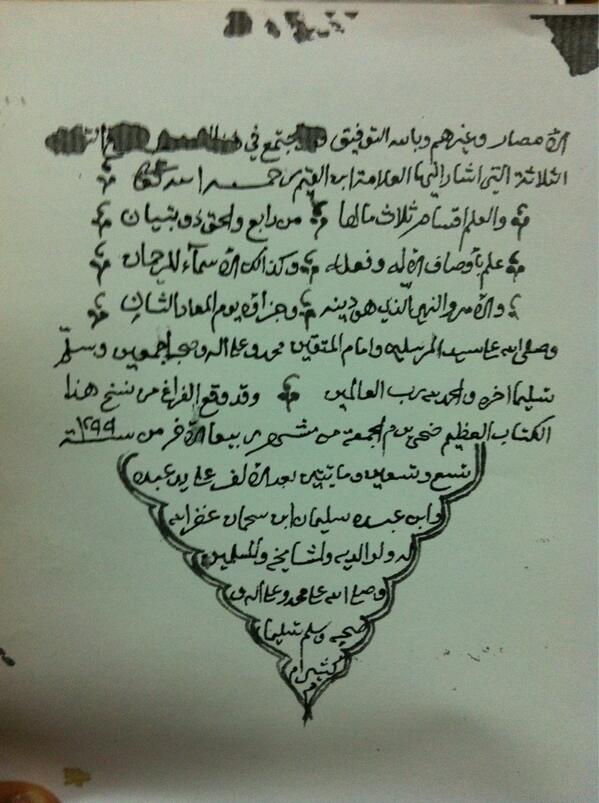 الأمصار وغيرهم وبالله التوفيق يجتمع في
الثلاثة التي اشار اليها العلامة ابن القيم رحمه الله تعالى
والعلم اقسام ثلاث مالها من رابع والحق ذو تبيان
علم بأوصاف الاله وفعله وكذلك الاسمآء للرحمان
والامر والنهي الذي هو دينه وجزاؤه يوم المعاد الثاني
وصلى الله على سيد المرسلين وامام المتقين محمد وعلى اله وصحبه اجمعين وسلم
تسليما اخره والحمد لله رب العالمين وقد وقع الفراغ من نسخ هذا
الكتاب العظيم ضحى يوم الجمعة من شهر ربيع الآخر من سنة ١٢٩٩
تسع وتسعين ومايتين بعد الالف على يد عبده
وابن عبده سليمان ابن سحمان غفر الله
له ولوالديه ولمشايخه وللمسلمين
وصلى الله على محمد وعلى اله و
صحبه وسلم تسليما
كثيرا م
م